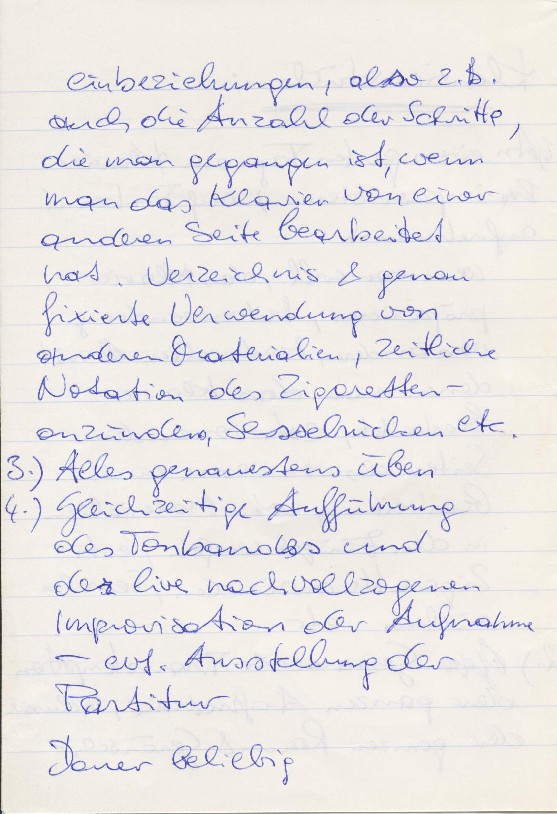 einbeziehungen, also z.B.
auch die Anzahl der Schritte,
die man gegangen ist, wenn
man das Klavier von einer
anderen Seite bearbeitet
hat. Verzeichnis & genau
fixierte Verwendung von
anderen Materialien, zeitliche
Notation des Zigaretten-
anzünden, Sesselrücken etc.
3.) Alles genauestens üben
4.) Gleichzeitige Aufführung
des Tonbandes und
der live nachvollzogenen
Improvisation der Aufnahme
– evt. Ausstellung der
Partitur
Dauer beliebig